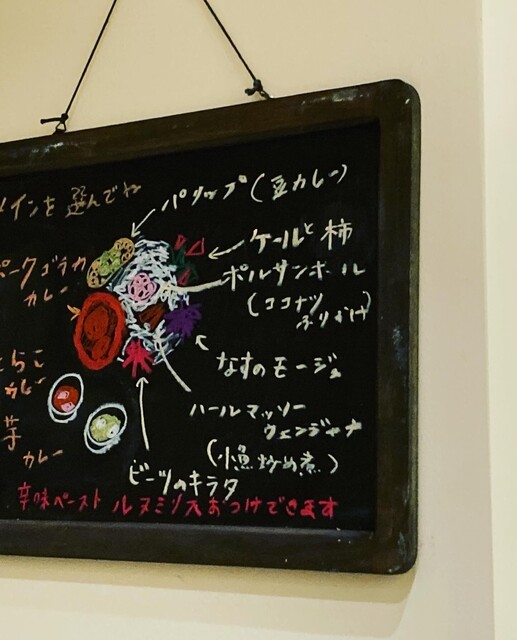 メインを選んでね
パリップ(豆カレー)
ケールと柿
ポークゴラカ
カレー
ポルサンボール
(ココナツ
ふりかけ)
なすのモージュ
カレー
ハールマッソー
ウェンジャナ
(小魚炒め煮)
芋
カレー
ビーツのキラタ
辛味ペースト ルヌミリスおつけできます